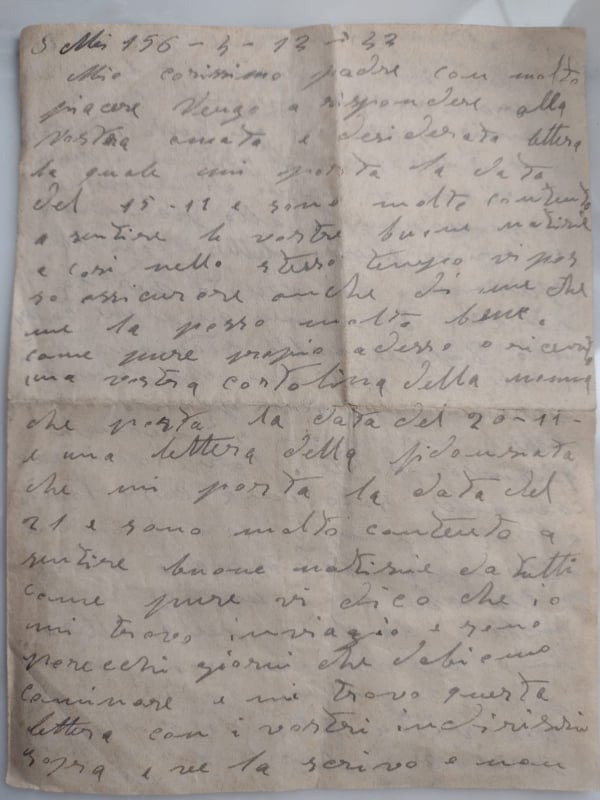 Mio carissimo padre con molto
piacere Vengo a rispondere alla
vostra amata e desiderata lettera
la quale mi porta la data
del 15-11 e sono molto contento
a sentire le vostre buone notisie
e cosi nello stesso tempo vi pos
so assicurare anche di me che
me la passo molto bene.
come pure propio adesso o ricevuto
una vostra cartolina della mamma
che porta la data del 20-11-
e una lettera della fidansata
che mi porta la data del
21 e sono molto contento a
sentire buone notisie da tutti
come pure vi dico che io
mi trovo in viagio e sono
parecchi giorni che dobiamo
caminare e mi trovo questa
lettera con i vostri indirissi
sopra e ve la scrivo e non